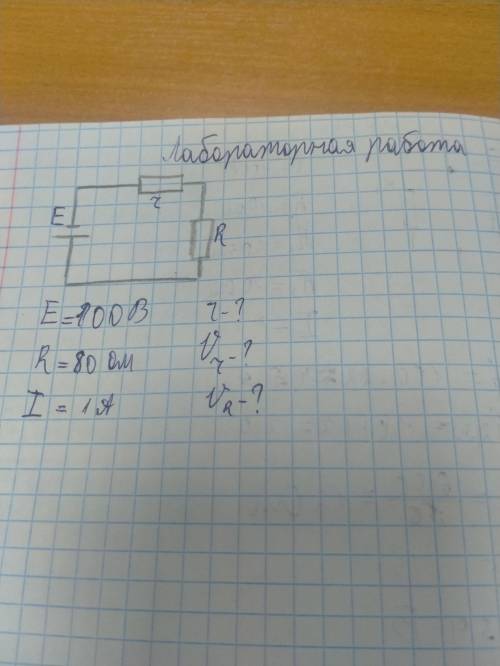 Лабораторная работа
r
E
R
E = 100 В r - ?
R = 80 Ом V_r - ?
I = 1 А V_R - ?